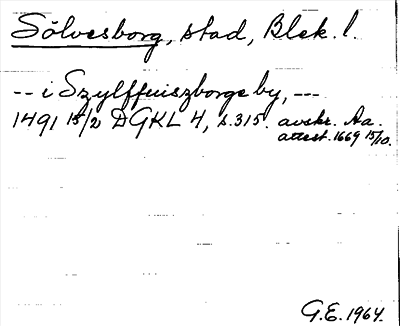 Sölvesborg, stad, Blek. l.
-- i Szylffuiszborgs by, ---
1491 15/2 DGKL 4, s. 315. avskr. Aa.
attest. 1669 15/10.
G.E. 1964.